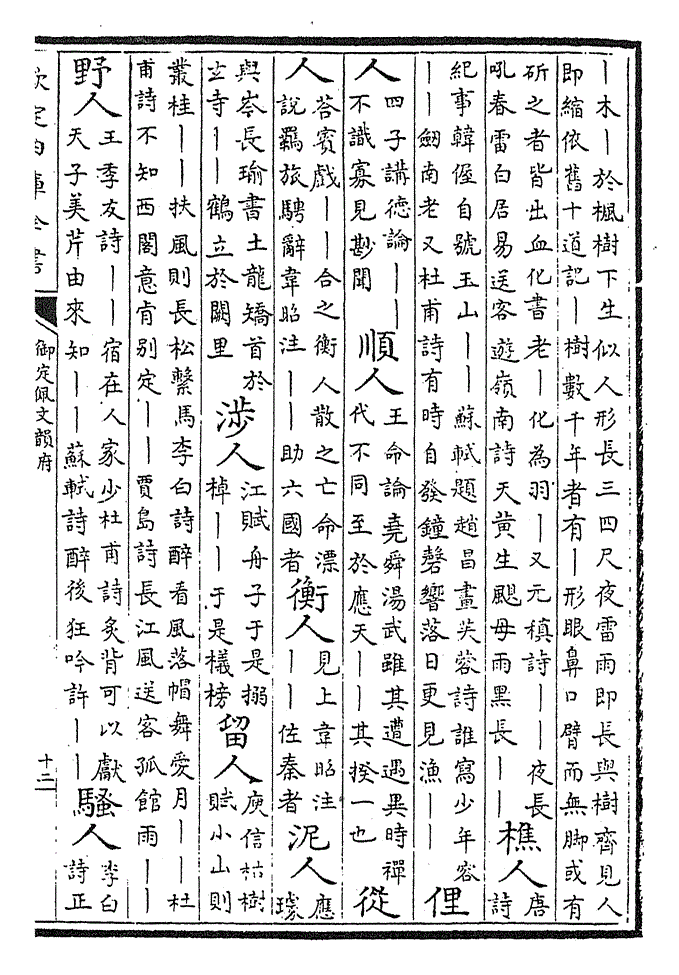 ｜木｜於楓樹下生似人形長三四尺夜雷雨即長與樹齊見人
即縮依舊十道記｜樹數千年者有｜形眼鼻口臂而無脚或有
斫之者皆出血化書老｜化為羽｜又元稹詩｜｜夜長
吼春雷白居易送客遊嶺南詩天黃生颶母雨黑長｜｜
樵人
唐
詩
紀事韓偓自號玉山｜｜蘇軾題趙昌畫芙蓉詩誰寫少年容
｜｜劒南老又杜甫詩有時自發鐘磬響落日更見漁｜｜
俚
人
四子講德論｜｜｜
不識寡見尠聞
順人
王命論堯舜湯武雖其遭遇異時禪
代不同至於應天｜｜其揆一也
從
人
荅賓戲｜｜合之衡人散之亡命漂
說羇旅騁辭韋昭注｜｜助六國者
衡人
見上韋昭注
｜｜佐秦者
泥人
應
璩
與岑長瑜書土龍矯首於
𤣥寺｜｜鶴立於闕里
涉人
江賦舟子于是搦
棹｜｜于是檥榜
留人
庾信枯樹
賦小山則
叢桂｜｜扶風則長松繫馬李白詩醉看風落帽舞愛月｜｜杜
甫詩不知西閣意肯别定｜｜賈島詩長江風送客孤館雨｜｜
野人
王季友詩｜｜｜宿在人家少杜甫詩炙背可以獻
天子美芹由來知｜｜蘇軾詩醉後狂吟許｜｜
騷人
李白
詩正
欽定四庫全書
御定佩文韻府
十二